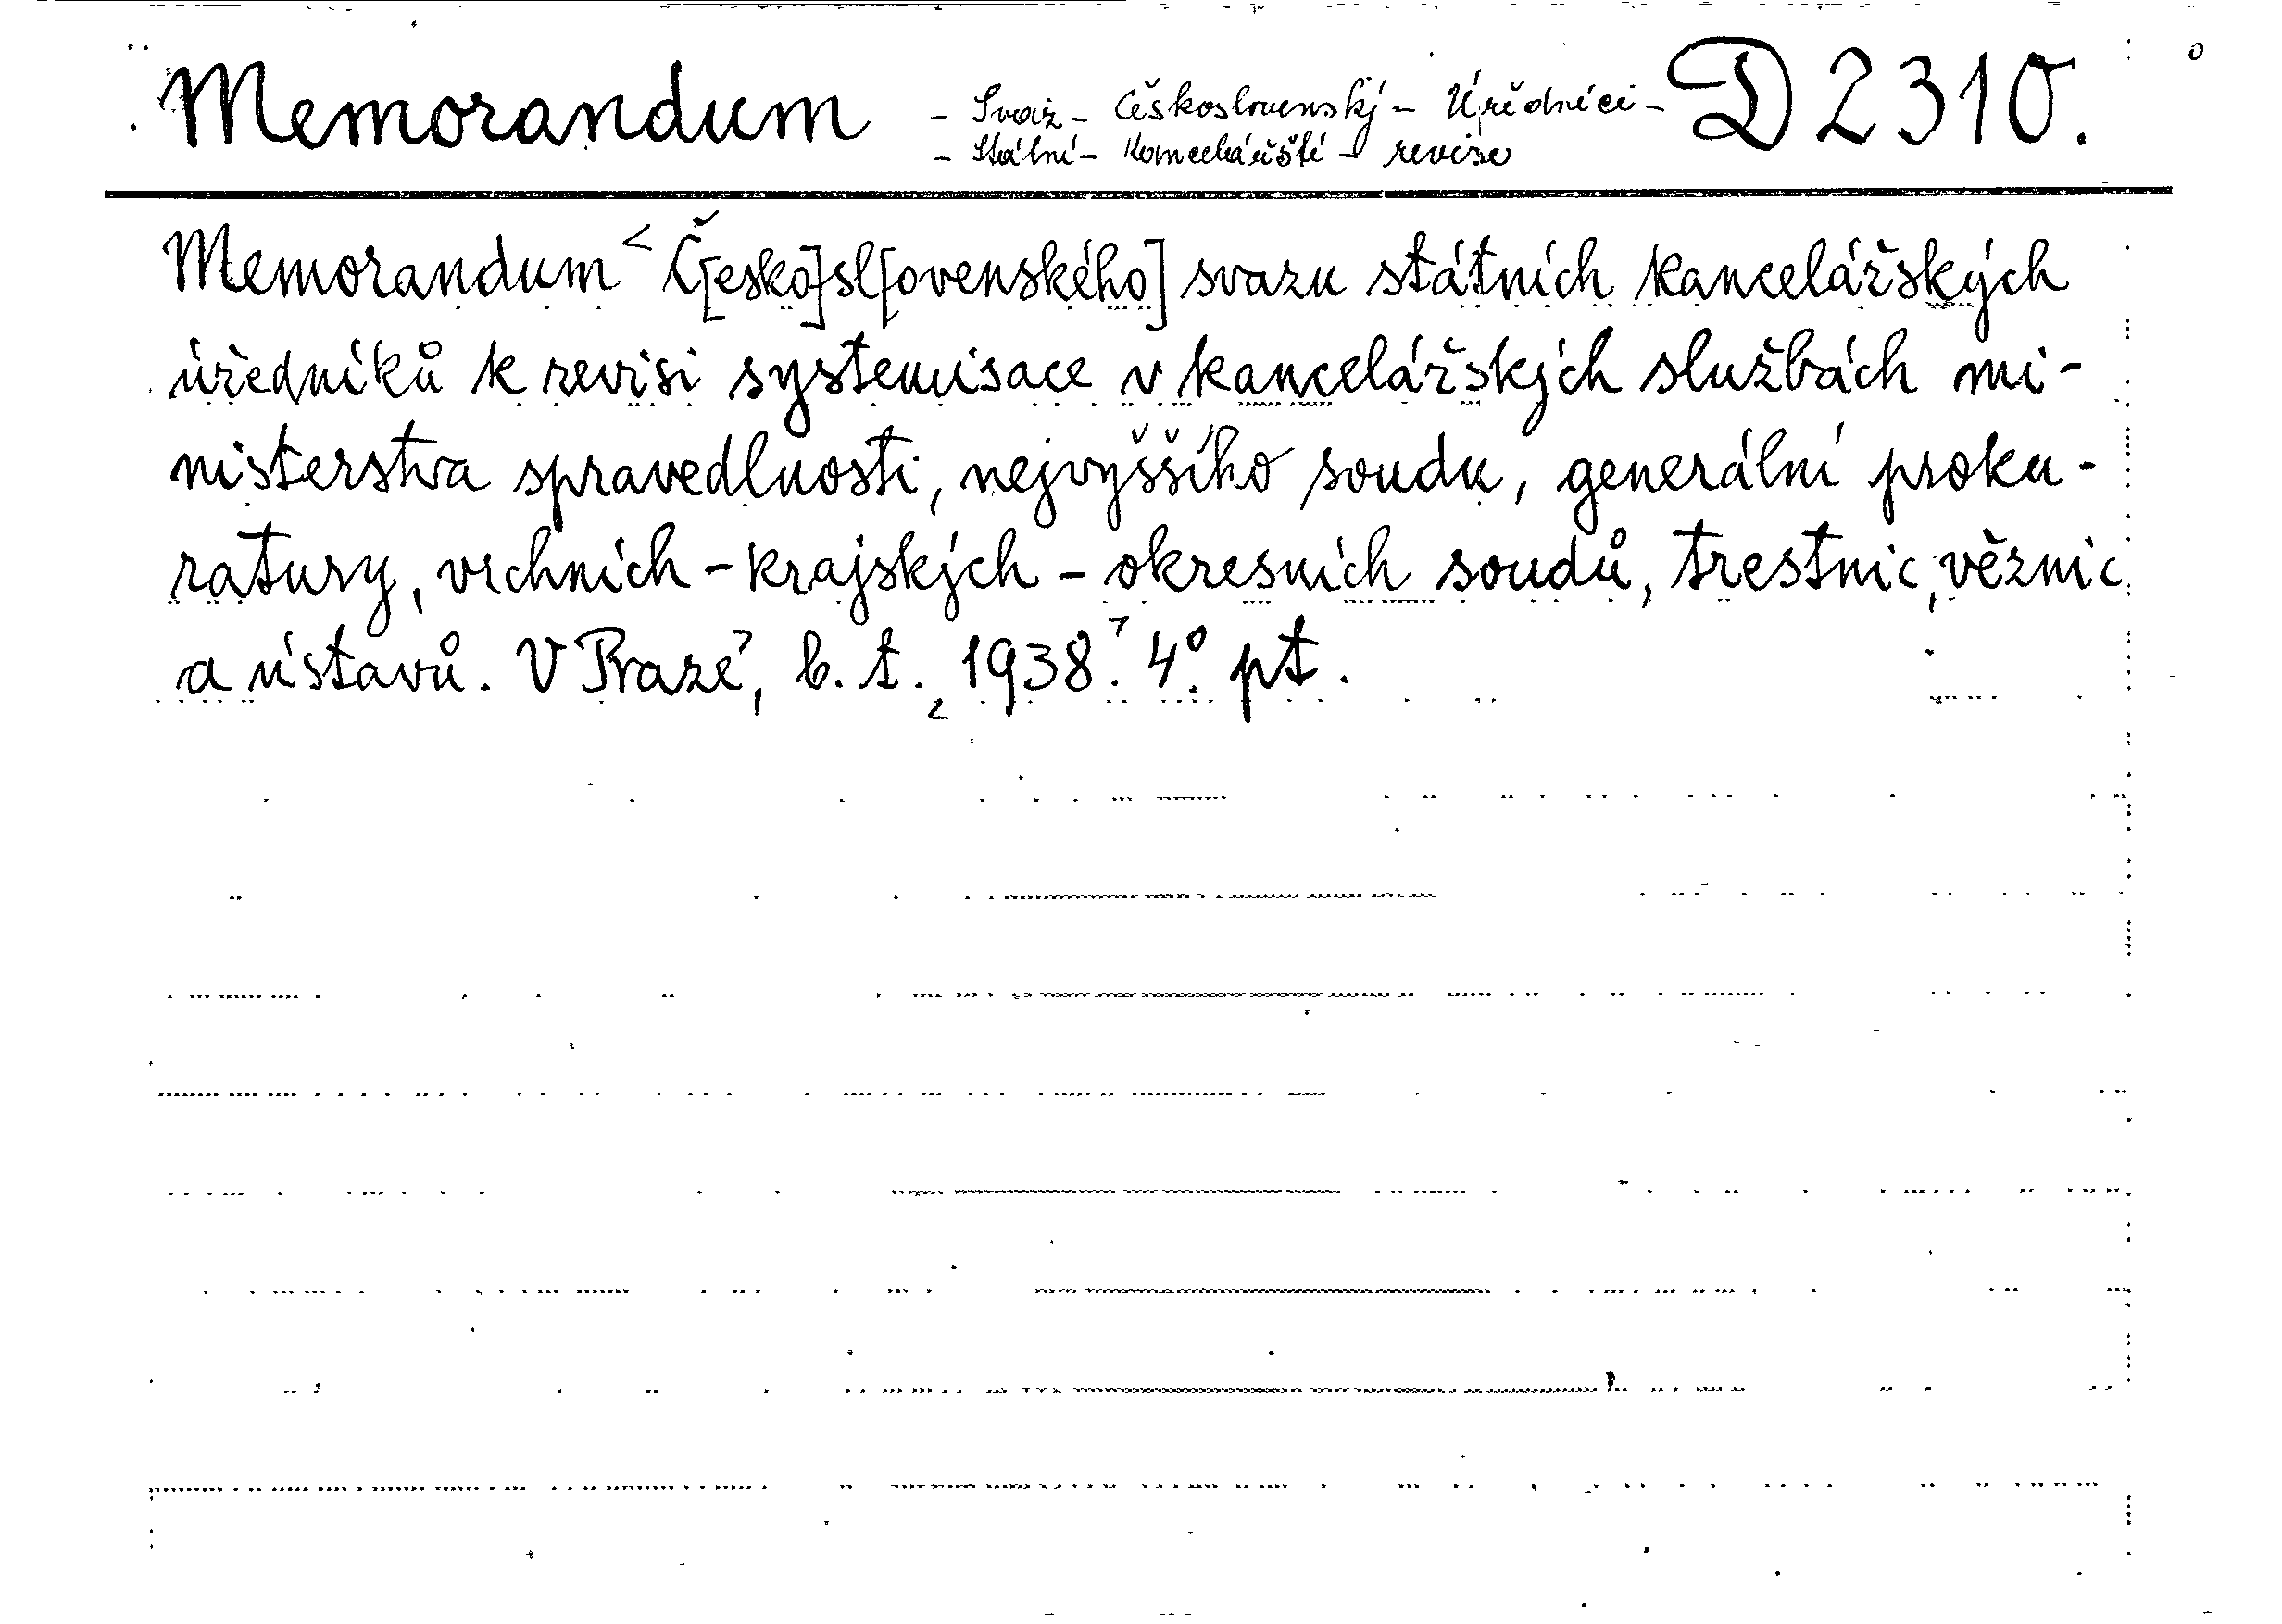 Memorandum - Svaz - Československý - Úředníci - D 2310.
- Státní - Kancelářští - revise
Memorandum < Č[esko]sl[ovenského] svazu státních kancelářských
úředníků k revisi systemisace v kancelářských službách mi-
nisterstva spravedlnosti, nejvyššího soudu, generální proku-
ratury, vrchních - krajských - okresních soudů, trestnic, věznic
a ústavů. V Praze>, b. t. <1938.> 4° pt.